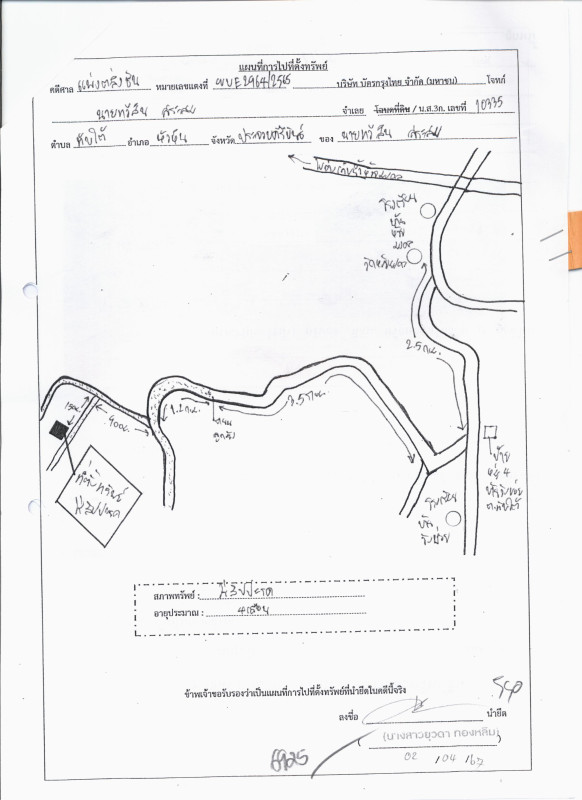 แผนที่การไปที่ตั้งทรัพย์
คดีศาล แพ่งตลิ่งชัน หมายเลขแดงที่ ผบE2964/2565 บริษัท บัตรกรุงไทย จำกัด (มหาชน) โจทก์
นายทวีสิน จำเลย โฉนดที่ดิน / น.ส.3ก. เลขที่ 10335
ตำบล ทับใต้ อำเภอ หัวหิน จังหวัด ประจวบคีรีขันธ์ ของ นายทวีสิน
โรงเรียน
บ้าน
ห้วย
มงคล
วัดห้วยมงคล
2.5 กม.
3.5 กม.
1.2 กม.
ถนน
ลูกรัง
400ม.
150ม.
ที่ตั้งทรัพย์
ป้าย
หมู่ 4
ต.ทับใต้
โรงเรียน
บ้าน
สภาพทรัพย์ : สับปะรด
อายุประมาณ : 4 เดือน
ข้าพเจ้าขอรับรองว่าเป็นแผนที่การไปที่ตั้งทรัพย์ที่นำยึดในคดีนี้จริง
ลงชื่อ นำยึด
(นางสาวยุวดา ทองหลิม)
02 / 04 / 67
6925